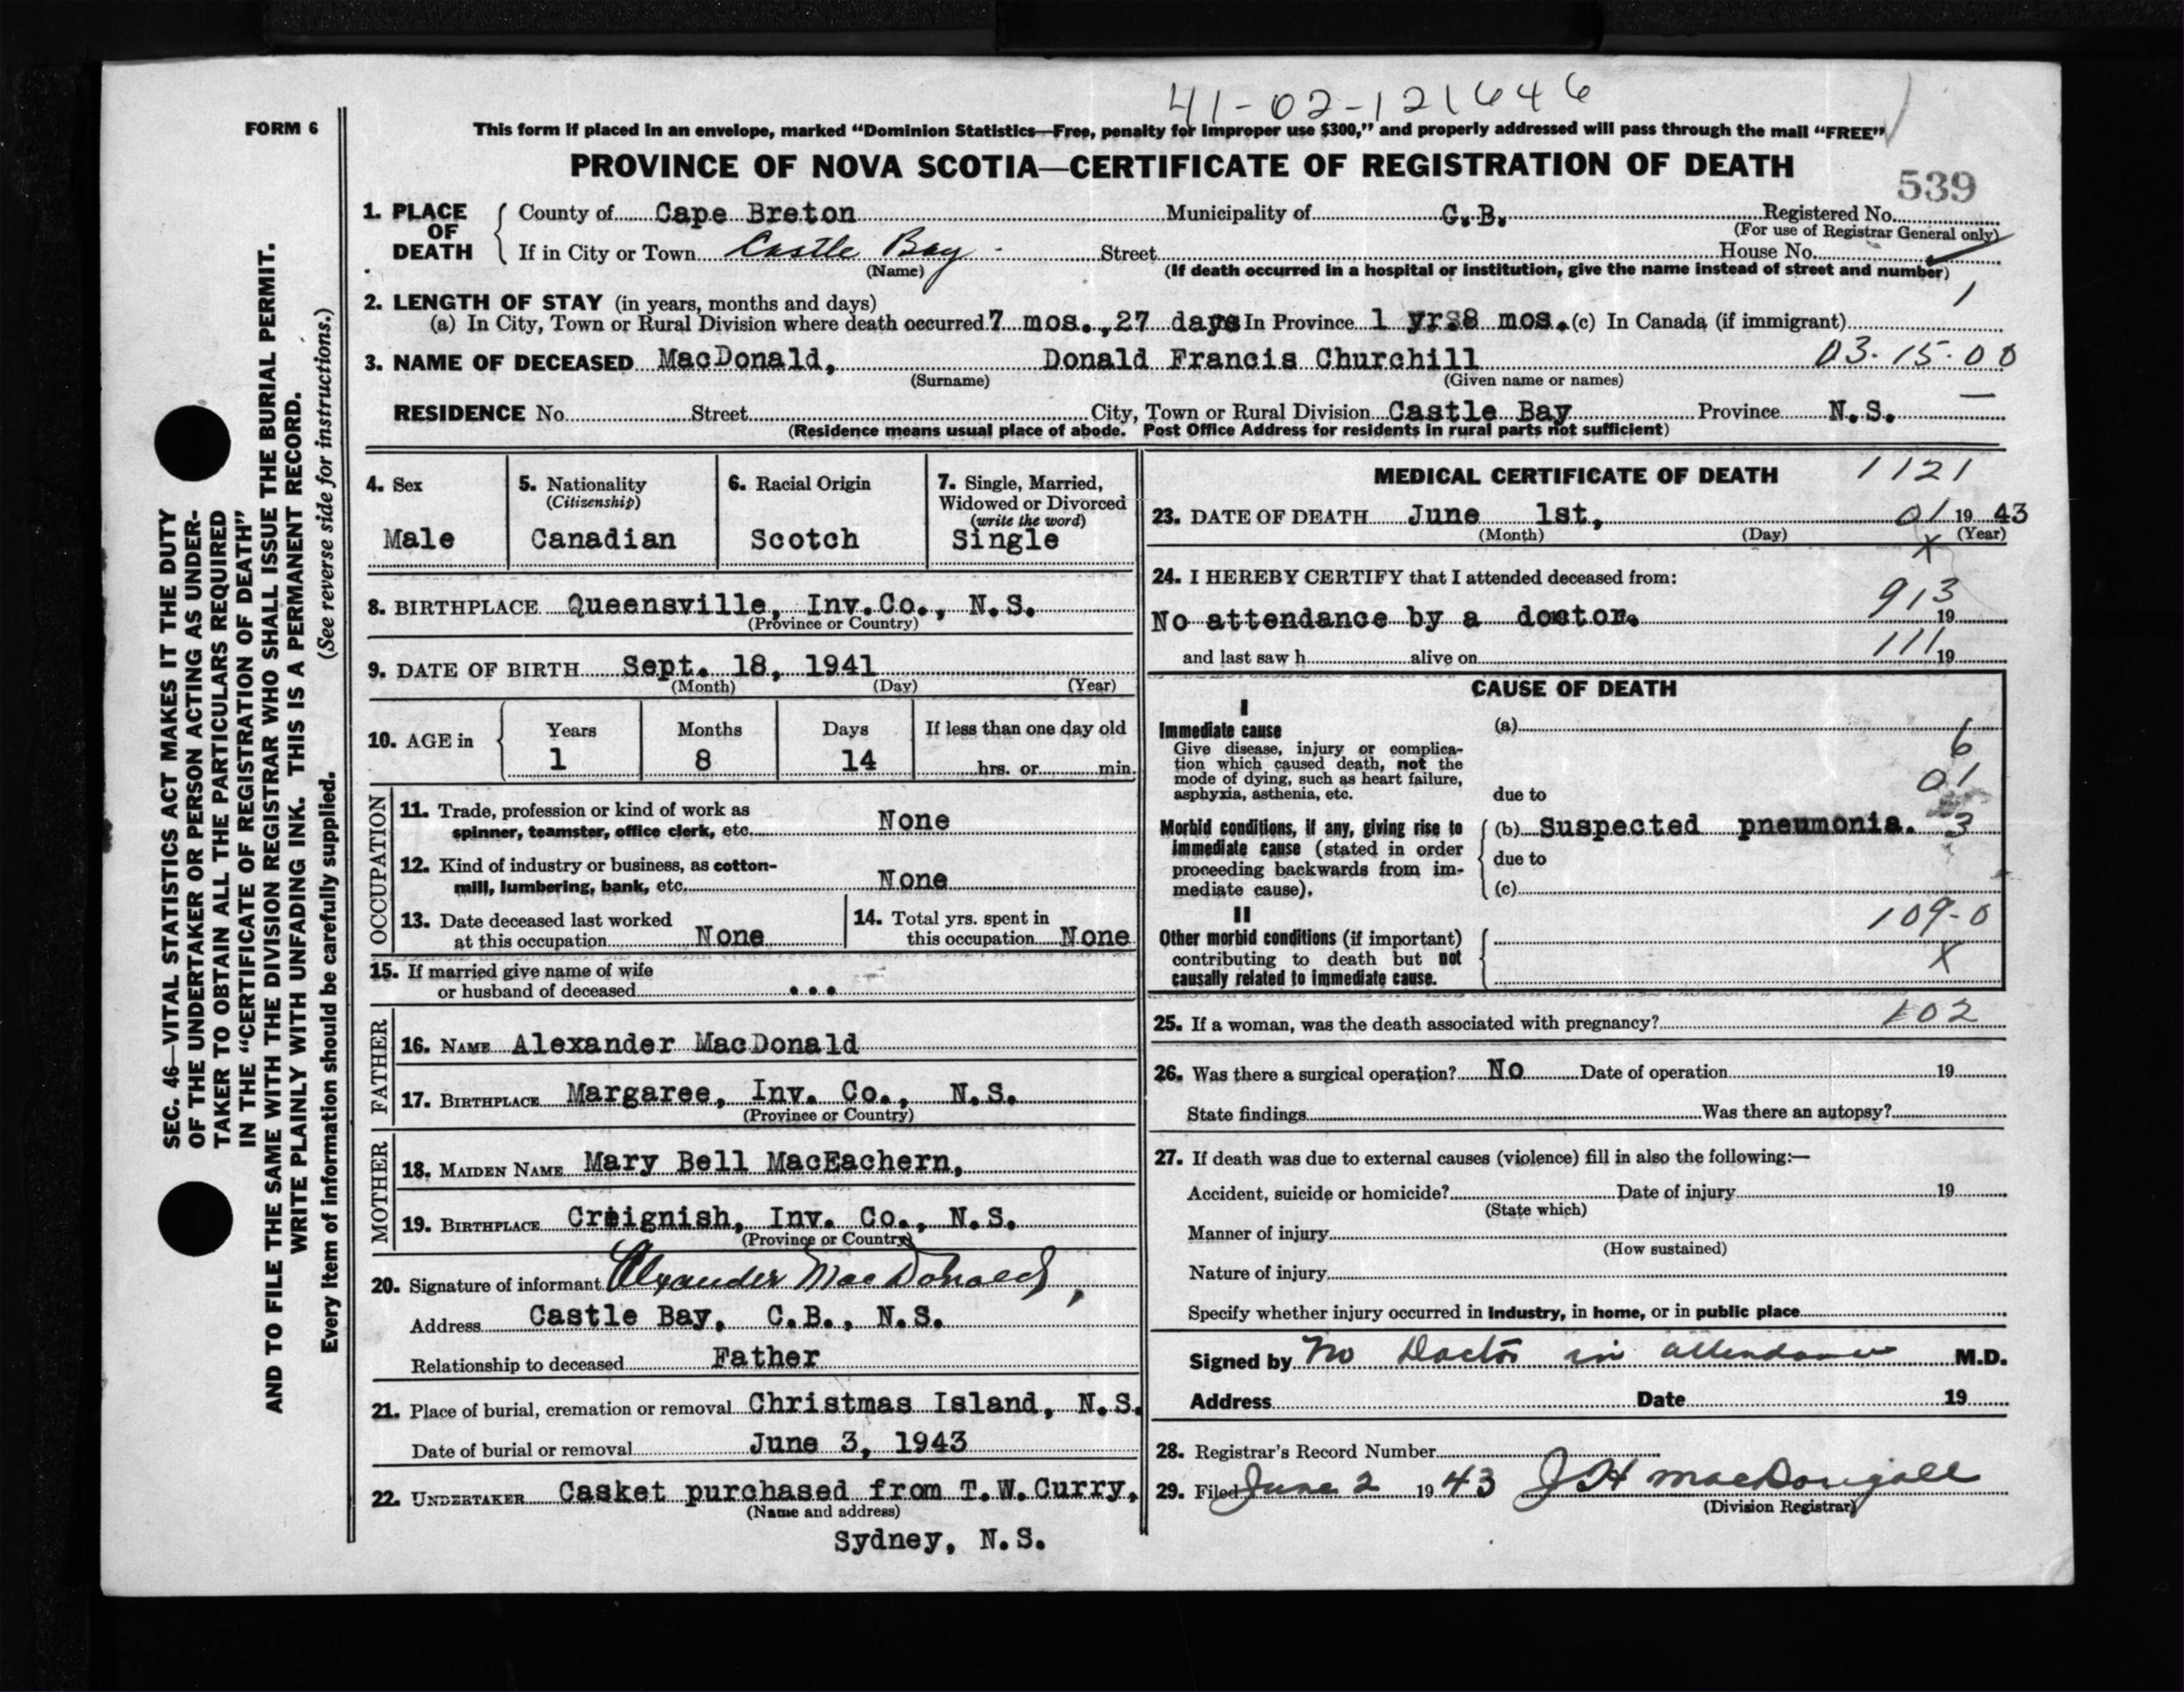 41-02-121646
FORM 6
This form if placed in an envelope, marked “Dominion Statistics—Free, penalty for improper use $300,” and properly addressed will pass through the mail “FREE”
PROVINCE OF NOVA SCOTIA—CERTIFICATE OF REGISTRATION OF DEATH
539
1. PLACE OF DEATH
County of Cape Breton Municipality of C.B. Registered No.
(For use of Registrar General only)
If in City or Town Castle Bay - Street House No.
(Name) (If death occurred in a hospital or institution, give the name instead of street and number)
2. LENGTH OF STAY (in years, months and days) 1
(a) In City, Town or Rural Division where death occurred 7 mos., 27 days In Province 1 yrs8 mos. (c) In Canada (if immigrant)
3. NAME OF DECEASED MacDonald, Donald Francis Churchill 03-15-00
(Surname) (Given name or names)
RESIDENCE No. Street City, Town or Rural Division Castle Bay Province N.S.
(Residence means usual place of abode. Post Office Address for residents in rural parts not sufficient)
4. Sex
Male
5. Nationality
(Citizenship)
Canadian
6. Racial Origin
Scotch
7. Single, Married,
Widowed or Divorced
(write the word)
Single
8. BIRTHPLACE Queensville, Inv.Co., N.S.
(Province or Country)
9. DATE OF BIRTH Sept. 18, 1941
(Month) (Day) (Year)
10. AGE in
Years Months Days If less than one day old
1 8 14 hrs. or min.
OCCUPATION
11. Trade, profession or kind of work as
spinner, teamster, office clerk, etc. None
12. Kind of industry or business, as cotton-
mill, lumbering, bank, etc. None
13. Date deceased last worked
at this occupation None
14. Total yrs. spent in
this occupation None
15. If married give name of wife
or husband of deceased ...
FATHER
16. NAME Alexander MacDonald
17. BIRTHPLACE Margaree, Inv. Co., N.S.
(Province or Country)
MOTHER
18. MAIDEN NAME Mary Bell MacEachern,
19. BIRTHPLACE Creignish, Inv. Co., N.S.
(Province or Country)
20. Signature of informant Alexander MacDonald,
Address Castle Bay, C.B., N.S.
Relationship to deceased Father
21. Place of burial, cremation or removal Christmas Island, N.S.
Date of burial or removal June 3, 1943
22. UNDERTAKER Casket purchased from T.W.Curry,
(Name and address)
Sydney, N.S.
MEDICAL CERTIFICATE OF DEATH 1121
23. DATE OF DEATH June 1st, 01 19 43
(Month) (Day) (Year)
X
24. I HEREBY CERTIFY that I attended deceased from:
913
No attendance by a doctor. 19
111
and last saw h alive on 19
CAUSE OF DEATH
I
Immediate cause
Give disease, injury or complica-
tion which caused death, not the
mode of dying, such as heart failure,
asphyxia, asthenia, etc.
(a)
6
01
due to
Morbid conditions, if any, giving rise to
immediate cause (stated in order
proceeding backwards from im-
mediate cause).
(b) Suspected pneumonia. 3
due to
(c)
II
109-0
Other morbid conditions (if important)
contributing to death but not
causally related to immediate cause.
X
25. If a woman, was the death associated with pregnancy? 102
26. Was there a surgical operation? No Date of operation 19
State findings Was there an autopsy?
27. If death was due to external causes (violence) fill in also the following:—
Accident, suicide or homicide? Date of injury 19
(State which)
Manner of injury
(How sustained)
Nature of injury
Specify whether injury occurred in industry, in home, or in public place
Signed by No Doctor in attendance M.D.
Address Date 19
28. Registrar’s Record Number
29. Filed June 2 19 43 J H MacDougall
(Division Registrar)
SEC. 46—VITAL STATISTICS ACT MAKES IT THE DUTY
OF THE UNDERTAKER OR PERSON ACTING AS UNDER-
TAKER TO OBTAIN ALL THE PARTICULARS REQUIRED
IN THE “CERTIFICATE OF REGISTRATION OF DEATH”
AND TO FILE THE SAME WITH THE DIVISION REGISTRAR WHO SHALL ISSUE THE BURIAL PERMIT.
WRITE PLAINLY WITH UNFADING INK. THIS IS A PERMANENT RECORD.
Every item of information should be carefully supplied. (See reverse side for instructions.)